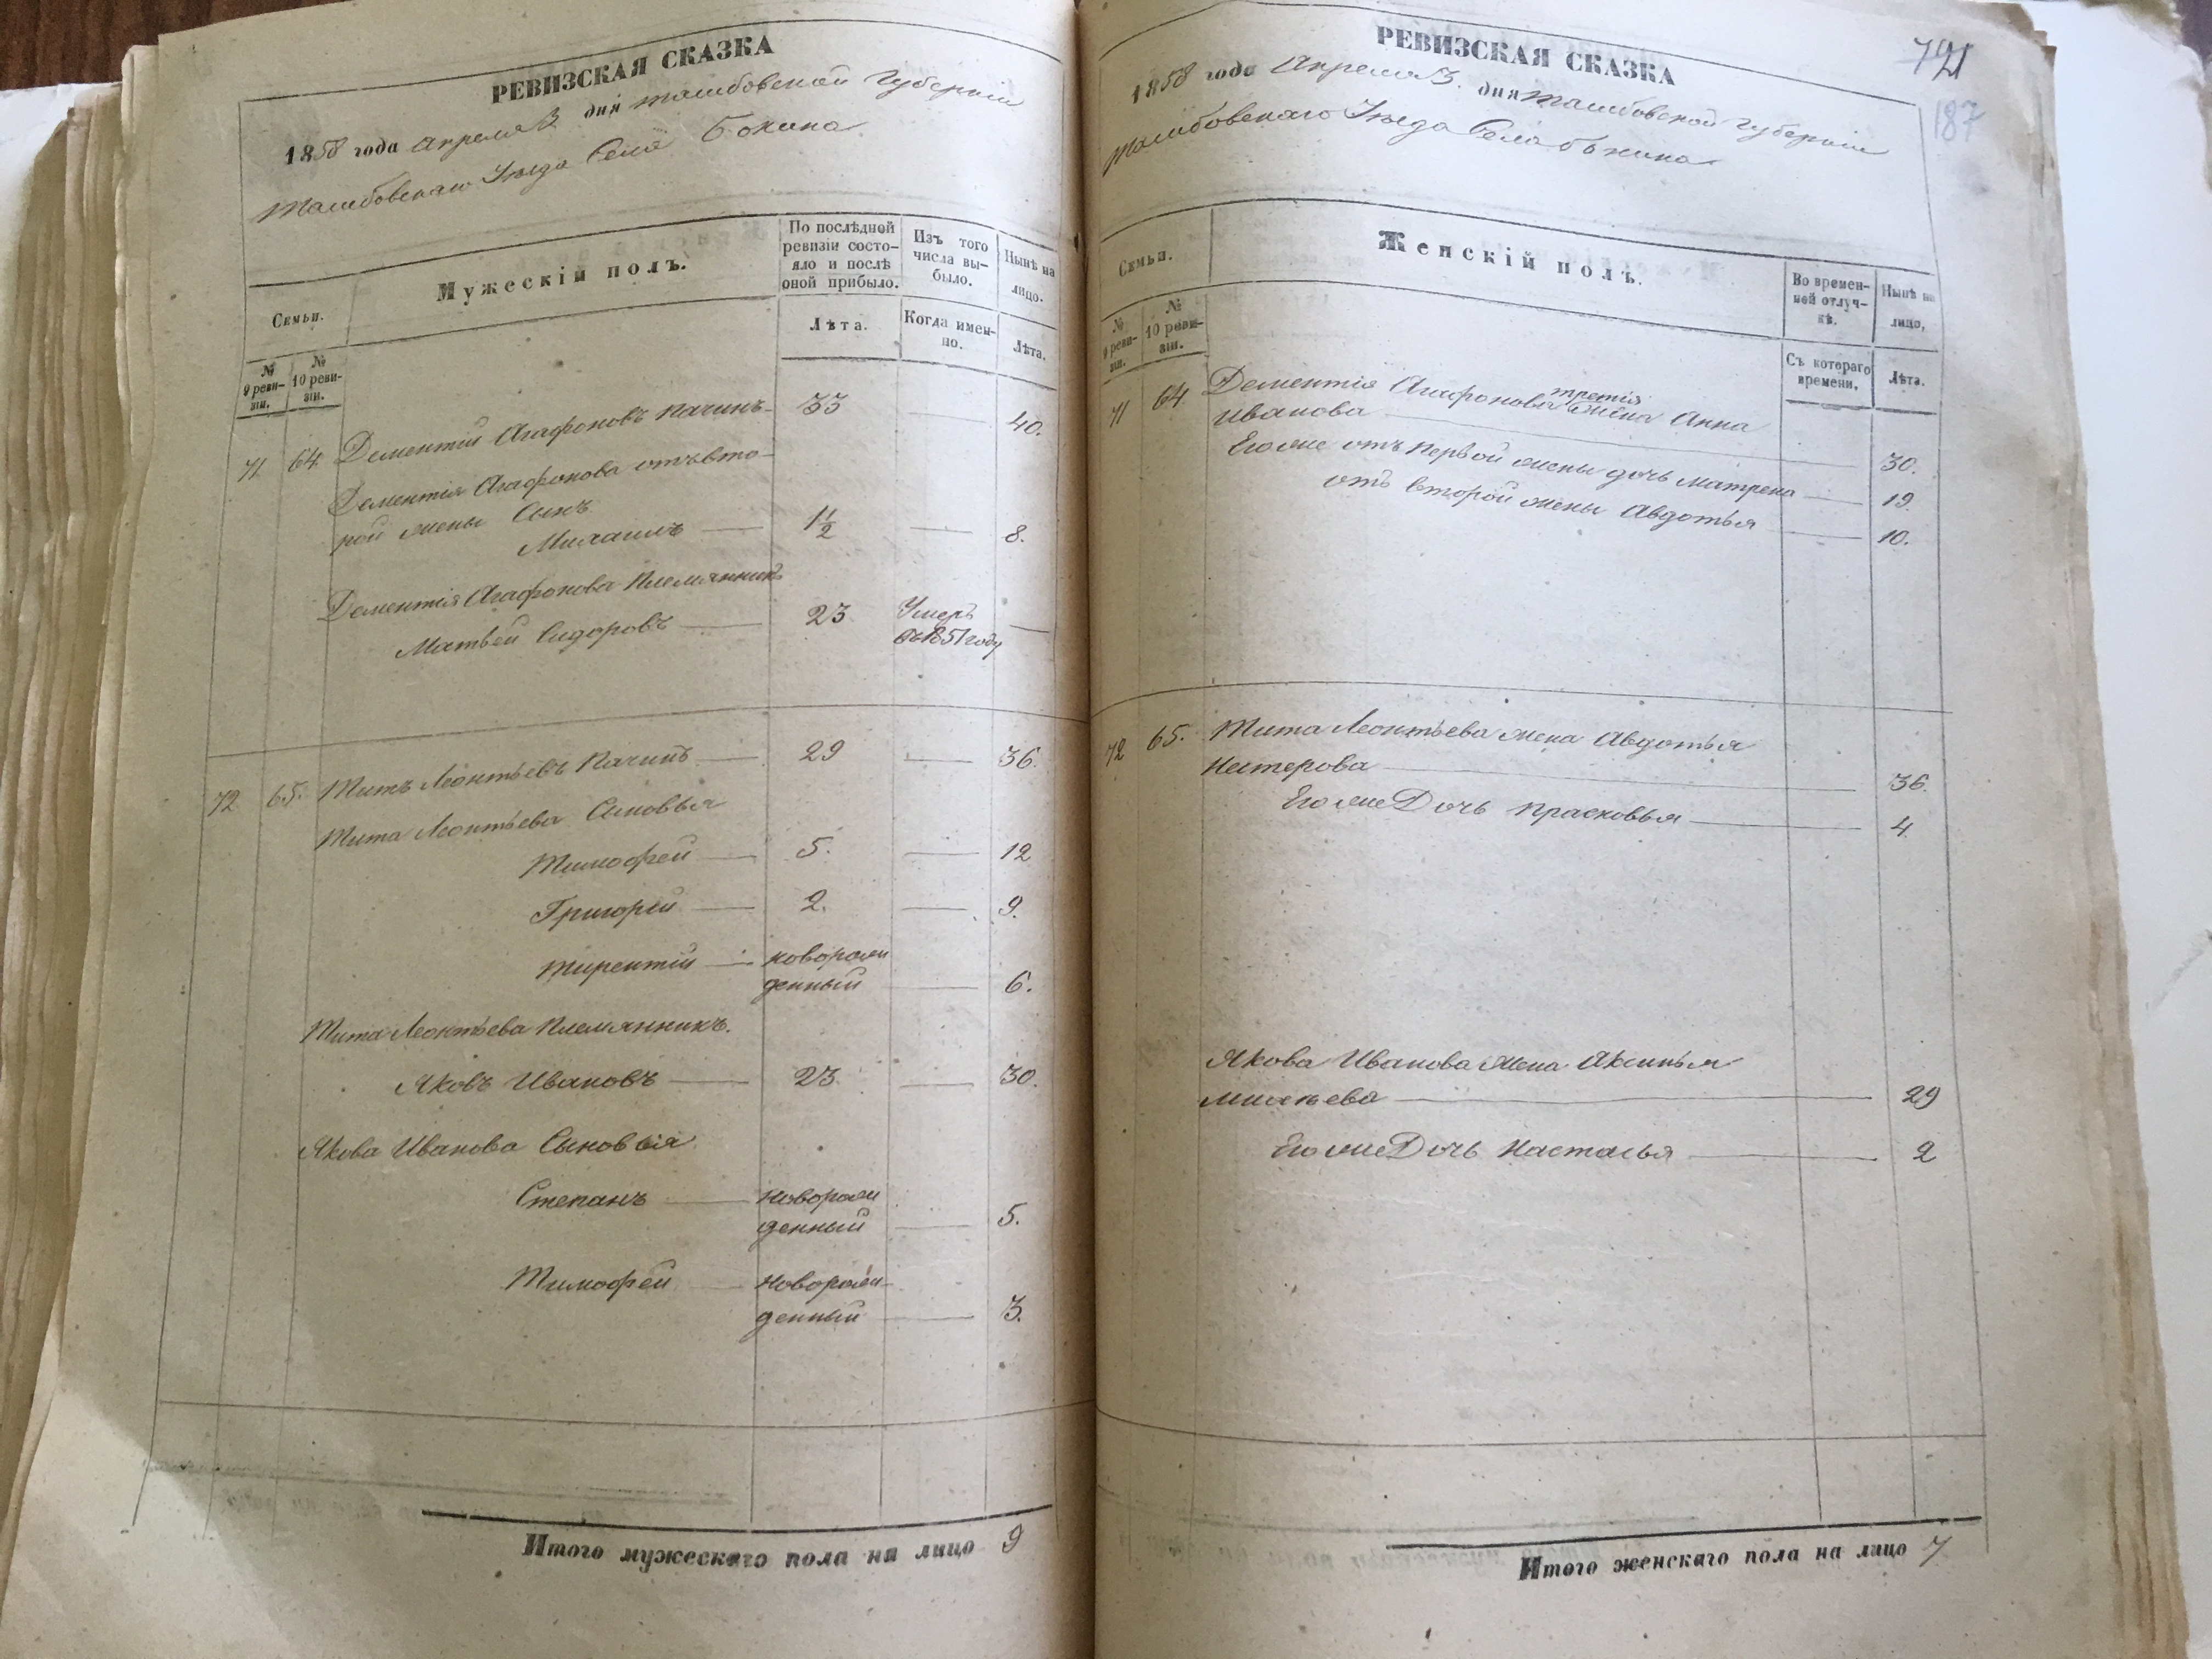 РЕВИЗСКАЯ СКАЗКА
1858 года Апреля 3 дня Тамбовской Губернии
Тамбовскаго Уѣзда Села Бокина
Семьи.
Мужескій полъ.
По послѣдней ревизіи состо-
яло и послѣ
оной прибыло.
Изъ того
числа вы-
было.
Нынѣ на
лицо.
№
9 реви-
зіи.
№
10 реви-
зіи.
Лѣта.
Когда имен-
но.
Лѣта.
71 64 Дементій Агафоновъ Качинъ 33 40.
Дементія Агафонова отъ вто-
рой жены Сынъ
Михаилъ 1½ 8.
Дементія Агафонова Племянникъ
Матвей Сидоровъ 23 Умеръ
въ 1851 году
72 65. Титъ Леонтьевъ Качинъ 29 36.
Тита Леонтьева Сыновья
Тимофей 5. 12
Григорей 2. 9.
Тирентій новорож
денный 6.
Тита Леонтьева Племянникъ.
Яковъ Ивановъ 23 30.
Якова Иванова Сыновья
Степанъ новорож
денный 5.
Тимофей новорож
денный 3.
Итого мужескаго пола на лицо 9
РЕВИЗСКАЯ СКАЗКА
791
187
1858 года Апреля 3. дня Тамбовской Губернии
Тамбовскаго Уѣзда Села Бокина
Семьи.
Женскій полъ.
Во времен-
ной отлуч-
кѣ.
Нынѣ на
лицо,
№
9 реви-
зіи.
№
10 реви-
зіи.
Съ котораго
времени.
Лѣта.
71 64 Дементія Агафонова третія жена Анна
Иванова 30.
Его же отъ первой жены дочь Матрена 19.
отъ второй жены Авдотья 10.
72 65. Тита Леонтьева жена Авдотья
Нестерова 36.
Его же Дочь Прасковья 4.
Якова Иванова жена Аксинья
29
Его же Дочь Настасья 2
Итого женскаго пола на лицо 7